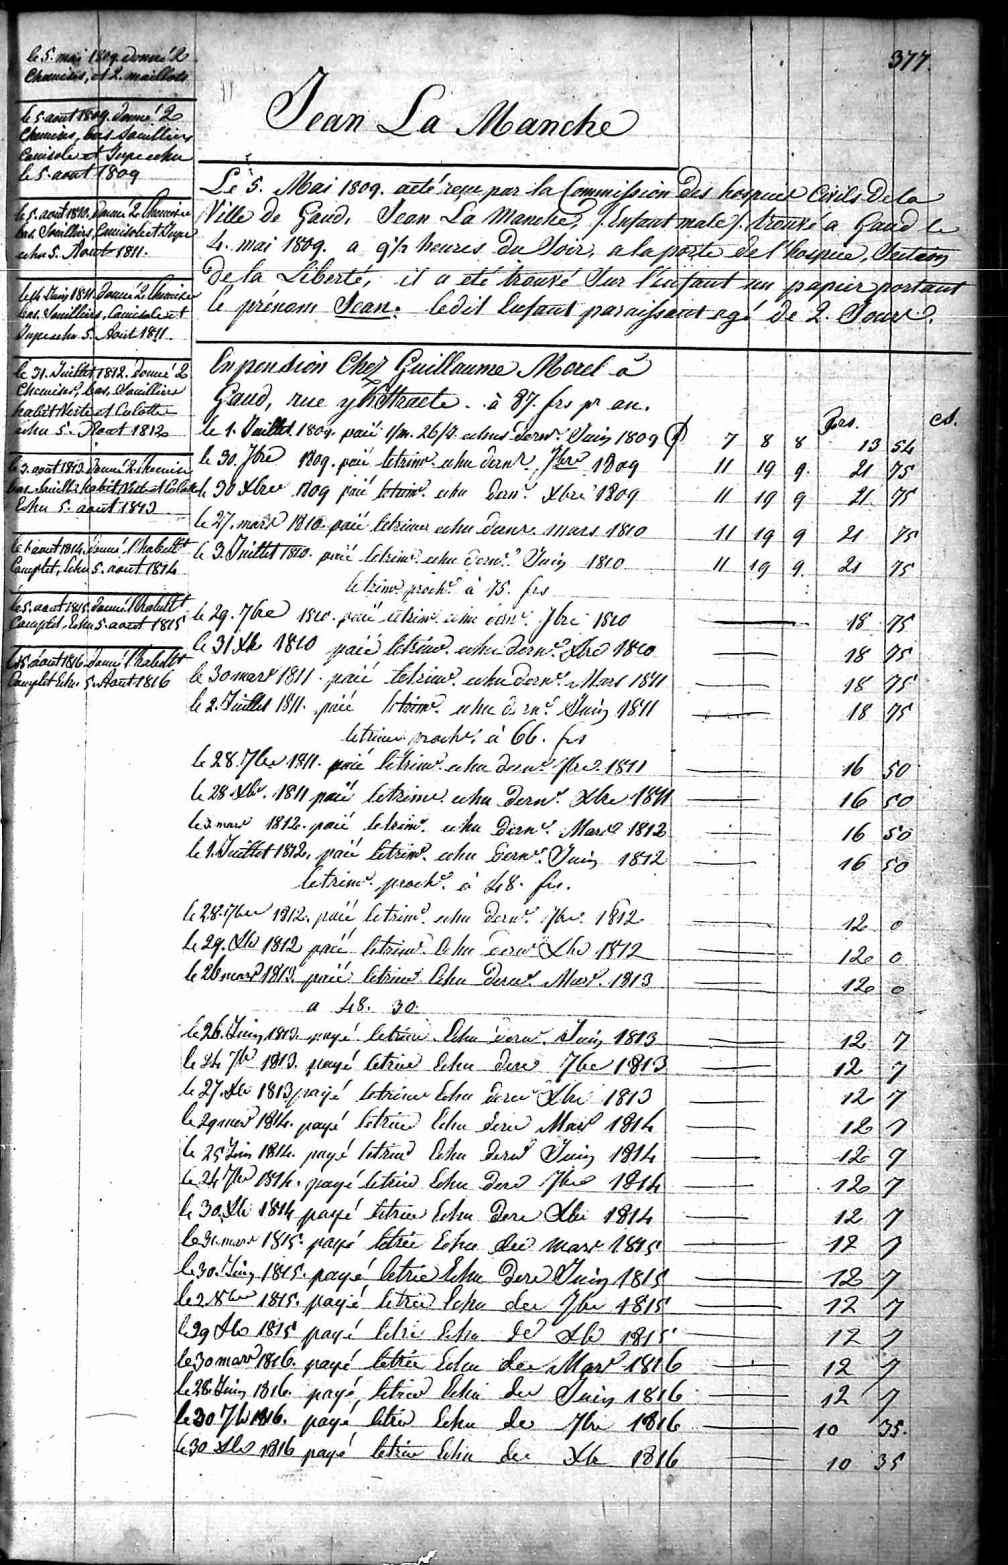 377.
Jean La Manche
Le 5. Mai 1809. acté reçu par la Commission des hospices Civils De la
Ville de Gand, Jean La Manche, /: Enfant male :/ trouvé a Gand le
4. mai 1809. a 9½ heures du Soir, a la porte de l'hospice,
De la Liberté, il a eté trouvé Sur l'enfant un papier portant
le prénom Jean. ledit Enfant paraissant agé De 2. Jours.
le 5. mai 1809. donné 2
Chemises, et 2. maillots
le 5 aout 1809. donné 2
Chemises, bas, Souilliers
Camisole et Jupe echu
le 5. aout 1809
le 5. aout 1810. donné 2 Chemises
bas, Souilliers, Camisole et Jupe
echu 5. Aout 1811.
le 14 Juin 1811. donné 2 Chemises
bas, Souilliers, Camisole et
Jupe echu 5. Aout 1811.
le 31. Juillet 1812. donné 2
Chemises, bas, Souilliers
habit Veste et Culotte
echu 5. Aout 1812
le 3. aout 1813. donné 2 chemises
bas, Souilliers habit Vest et Culotte
Echu 5. aout 1813
le 1 aout 1814. donné l'habillt
Complet, Echu 5. aout 1814
le 5. aout 1815. donné l'habillt
Complet, Echu 5 aout 1815
le 15 aout 1816. donné l'habillt
Complet Echu. 5. Aout 1816
En pension Chez Guillaume Morel à
Gand, rue Straete. à 87. frs pr an.
frs. cs.
le 1. Juillet 1809. paié 1/m. 26/3. echus dernr. Juin 1809 7 8 8 13 54
le 30. 7bre 1809. paié letrimr. echu dernr. 7bre 1809 11 19 9. 21 75
le 30 Xbre 1809 paié letrimr. echu dernr. Xbre 1809 11 19 9 21. 75
le 27. mars 1810. paié letrimr echu dernr. mars 1810 11 19 9 21 75
le 3. Juillet 1810. paié letrimr. echu dernr. Juin 1810 11 19 9. 21 75
letrimr prochr. à 75. frs
le 29. 7bre 1810. paié letrimr. echu dernr. 7bre 1810 18 75
le 31 Xbr 1810 paié letrimr. echu dernr. Xbre 1810 18 75
le 30 mars 1811. paié letrimr. echu dernr. Mars 1811 18 75
le 2. Juillet 1811. paié letrimr. echu dernr. Juin 1811 18 75
letrimr prochr. à 66. frs
le 28. 7bre 1811. paié letrimr. echu dernr. 7bre. 1811 16 50
le 28 Xbr. 1811 paié letrimr. echu dernr. Xbre 1811 16 50
le 3. mars 1812. paié letrimr. echu dernr. Mars 1812 16 50
le 1. Juillet 1812. paié letrimr. echu dernr. Juin 1812 16 50
letrimr. prochr. à 48. frs.
le 28. 7bre 1812. paié letrimr. echu dernr. 7bre. 1812 12 0
le 29. Xbr 1812 paié letrimr. Echu dernr Xbre 1812 12 0
le 26 mars 1813 paié letrimr Echu Dernr. Mars. 1813 12 0
a 48. 30
le 26. Juin 1813. payé letrimr Echu dernr. Juin 1813 12 7
le 24 7br 1813. payé letrimr Echu dernr 7bre 1813 12 7
le 27. Xbr 1813 payé letrimr Echu dernr Xbre 1813 12 7
le 29 mars 1814. payé letrimr Echu dernr Mars 1814 12 7
le 25 Juin 1814. payé letrimr Echu dernr Juin 1814 12 7
le 24 7br 1814. payé letrimr Echu dernr 7bre 1814 12 7
le 30. Xbr 1814 payé letrimr Echu dernr Xbre 1814 12 7
le 31. mars 1815. payé letrimr Echu der mars 1815 12 7
le 30. Juin 1815. payé letrimr Echu der Juin 1815 12 7
le 2 8bre 1815. payé letrimr Echu der 7bre 1815 12 7
le 29 Xbr 1815 payé letrimr Echu de Xbr 1815 12 7
le 30 mars 1816. payé letrimr Echu der Mars 1816 12 7
le 28 Juin 1816. payé letrimr Echu der Juin 1816 12 7
le 30 7br 1816. payé letrimr Echu de 7bre 1816 10 35.
le 30 Xbr 1816 payé letrimr Echu der Xbr 1816 10 35